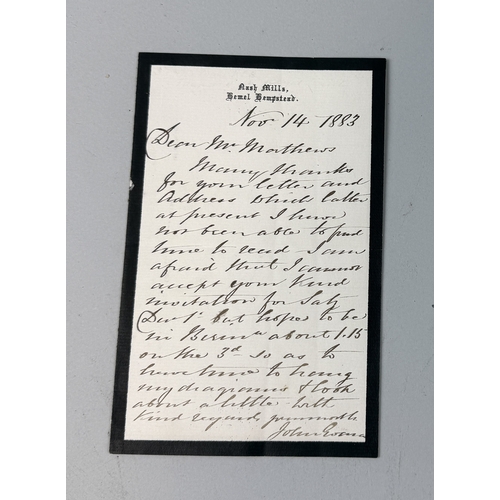 Nash Mills,
Hemel Hempstead.
Nov 14 1883
Dear Mr Mathews
Many thanks
for your letter and
Address which latter
at present I have
not been able to find
time to read I am
afraid that I cannot
accept your kind
invitation for Saty
Dec 1st but hope to be
in Birmm about 1.15
on the 3d so as to
have time to hang
my diagrams & look
about a little With
kind regards
John Evans